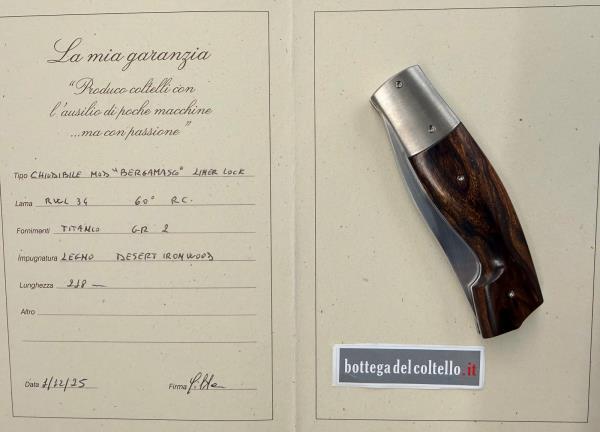 La mia garanzia
"Produco coltelli con
l'ausilio di poche macchine
...ma con passione"
Tipo CHIUDIBILE MOD "BERGAMASCO" LINER LOCK
Lama RWL 34 60° R.C.
Fornimenti TITANIO GR 2
Impugnatura LEGNO DESERT IRONWOOD
Lunghezza 218
Altro
Data 1/12/25 Firma
bottegadelcoltello.it